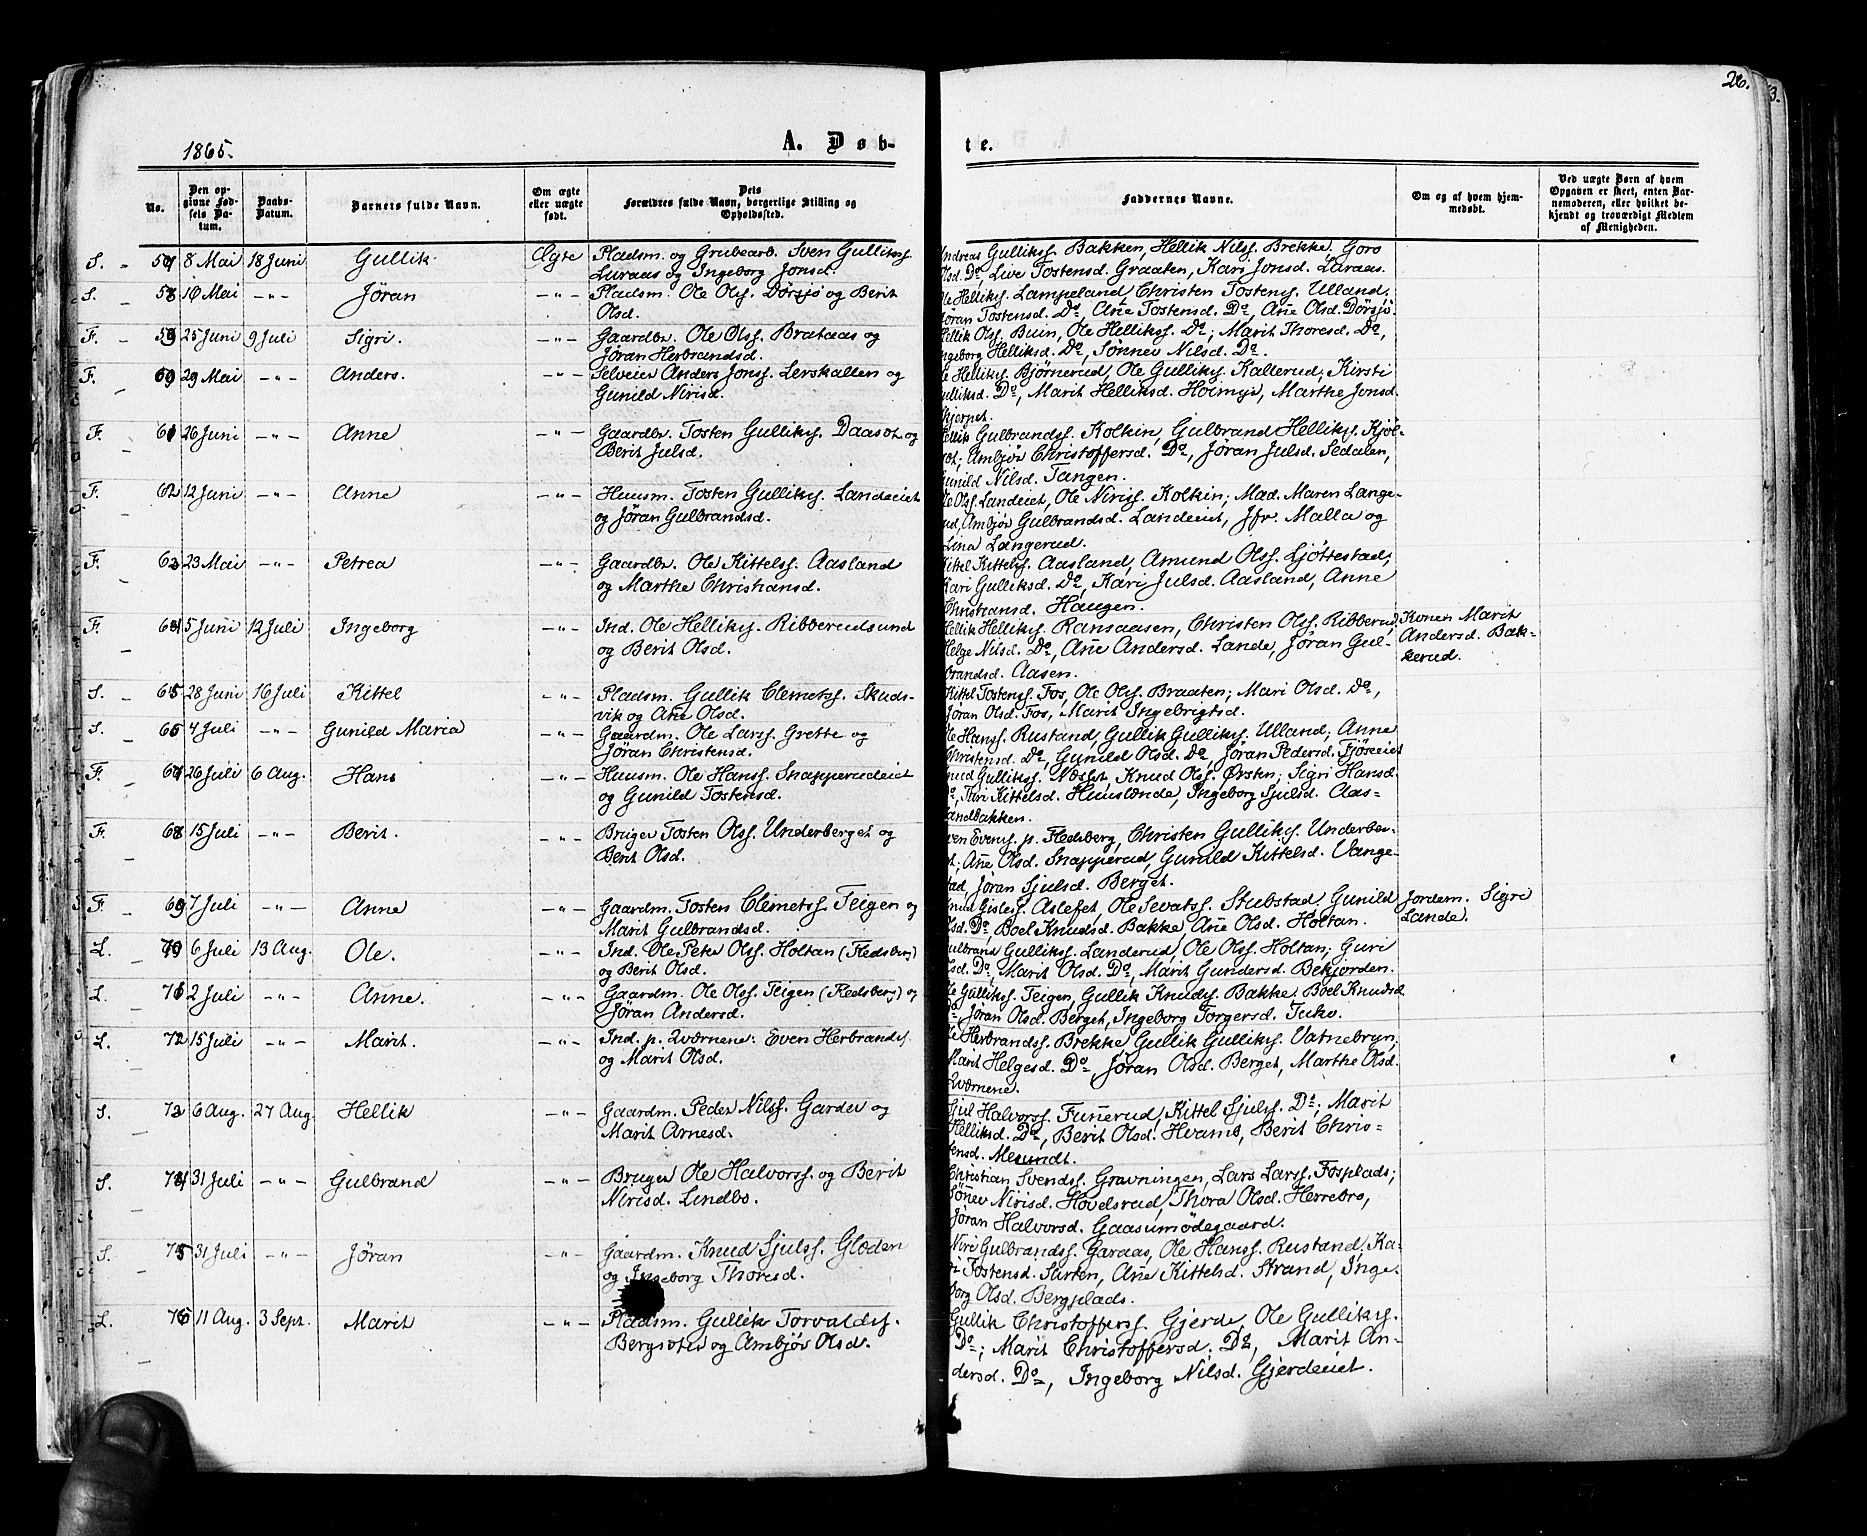 26.
3.
1865.
A. Døb-
te.
No.
Den op-
givne Fød-
sels Da-
tum.
Daabs-
Datum.
Barnets fulde Navn.
Om ægte
eller uægte
født.
Dets
Forældres fulde Navn, borgerlige Stilling og
Opholdssted.
Faddernes Navne.
Om og af hvem hjem-
medøbt.
Ved uægte Børn af hvem
Opgaven er skeet, enten Bar-
nemoderen, eller hvilket be-
kjendt og troværdigt Medlem
af Menigheden.
S. 57 8 Mai 18 Juni Gullik Ægte Pladsm. og Grubearb. Sven Gulliks.
Luraas og Ingeborg Jonsd.
Andreas Gulliks. Bakken, Hellik Nilss. Brekke, Goro
Olsd. Do, Live Tostensd. Graaten, Kari Jonsd. Laraas.
S. 58 10 Mai -"- Jøran -"- Pladsm. Ole Ols. Dørsjø og Berit
Olsd.
Ole Helliks. Lampeland, Christen Tostens. Ulland;
Jøran Tostensd. Do, Ane Tostensd. Do, Ane Olsd. Dørsjø.
F. 59 25 Juni 9 Juli Sigri. -"- Gaardbr. Ole Olss. Brataas og
Jøran Herbrandsd.
Hellik Ols. Buin, Ole Hellikss. Do; Marit Thoresd. Do,
Ingeborg Helliksd. Do, Sønnev Nilsd. Do.
F. 60 29 Mai -"- Anders. -"- Selveier Anders Jonss. Lerskallen og
Gunild Nirisd.
Ole Helliks. Bjørnerud, Ole Gulliks. Kallerud; Kirsti
Gulliksd. Do, Marit Helliksd. Hoimyr, Marthe Jonsd.
F. 61 26 Juni -"- Anne -"- Gaardbr. Tosten Gulliks. Daaset og
Berit Julsd.
Hellik Gulbrandss. Kolkin, Gulbrand Helliks. Kjøl-
set; Ambjør Christoffersd. Do, Jøran Julsd. Sedalen,
Gunild Nilsd. Tangen.
F. 62 12 Juni -"- Anne -"- Huusm. Tosten Gulliks. Landeiet
og Jøran Gulbrandsd.
Ole Olss. Landeiet, Ole Niriss. Kolkin; Mad. Maren Lange-
rud, Ambjør Gulbrandsd. Landeiet, Jfr. Malla og
Lina Langerud.
F. 63 23 Mai -"- Petrea -"- Gaardbr. Ole Kittelss. Aasland
og Marthe Christiansd.
Kittel Kittels. Aasland, Amund Olss. Ljøttestad;
Kari Gulliksd. Do, Kari Julsd. Aasland, Anne
Christiansd. Haugen.
F. 64 5 Juni 12 Juli Ingeborg -"- Ind. Ole Helliks. Ribberudsund
og Berit Olsd.
Hellik Helliks. Ransaasen, Christen Olss. Ribberud,
Helge Nilsd. Do, Ane Andersd. Lande, Jøran Gul-
brandsd. Aasen.
Konen Marit
Andersd. Bak-
kerud.
S. 65 28 Juni 16 Juli Kittel -"- Pladsm. Gullik Clemetss. Skuds-
vik og Ane Olsd.
Kittel Tostenss. Fos, Ole Ols. Braaten; Mari Olsd. Do,
Jøran Olsd. Fos, Marit Ingebrigtsd.
S. 66 4 Juli -"- Gunild Maria -"- Gaardm. Ole Larss. Grette og
Jøran Christensd.
Ole Hanss. Rustand, Gullik Gulliks. Ulland; Anne
Christensd. Do, Gunild Olsd. Do, Jøran Pedersd. Fjøseiet
F. 67 26 Juli 6 Aug. Hans -"- Huusm. Ole Hanss. Snapperudeiet
og Gunild Tostensd.
Knud Gulliks. Næset, Knud Ols. Ørsten; Sigri Hansd.
Do, Turi Kittelsd. Huuslænde, Ingeborg Sjulsd. Aas-
landbakken.
F. 68 15 Juli -"- Berit. -"- Bruger Tosten Olss. Underberget og
Berit Olsd.
Even Evens. p. Fledsberg, Christen Gulliks. Underber-
get; Ane Olsd. Snapperud, Gunild Kittelsd. Vange-
stad, Jøran Sjulsd. Berget.
F. 69 7 Juli -"- Anne -"- Gaardm. Tosten Clemetss. Teigen og
Marit Gulbrandsd.
Knud Gisless. Aslefet, Ole Sevatss. Stubstad, Gunild
Olsd. Do, Boel Knudsd. Bakke, Ane Olsd. Holtan.
Jordem. Sigri
Lande.
L. 70 6 Juli 13 Aug. Ole. -"- Ind. Ole Peter Olss. Holtan (Fledsberg)
og Berit Olsd.
Gulbrand Gulliks. Landerud, Ole Olss. Holtan; Guri
Olsd. Do, Marit Olsd. Do, Marit Gundersd. Bekjorden.
L. 71 2 Juli -"- Anne. -"- Gaardm. Ole Olss. Teigen (Fledsberg) og
Jøran Andersd.
Ole Gullikss. Teigen, Gullik Knuds. Bakke, Boel Knudsd
Do, Jøran Olsd. Berget, Ingeborg Torgersd. Juko.
L. 72 15 Juli -"- Marit. -"- Ind. p. Qværnene: Even Herbrands.
og Marit Olsd.
Ole Herbrandss. Brekke Gullik Gulliks. Vatnebryn,
Marit Helgesd. Do, Jøran Olsd. Berget, Marthe Olsd.
Qværnene.
S. 73 6 Aug. 27 Aug. Hellik -"- Gaardm. Peder Nilss. Garder og
Marit Arnesd.
Sjul Halvorss. Funnerud, Kittel Sjulss. Do; Marit
Helliksd. Do, Berit Olsd. Hvams, Berit Chris-
tensd. Mesundt.
S. 74 31 Juli -"- Gulbrand -"- Bruger Ole Halvorss. og Berit
Nirisd. Lindbo.
Christian Svendss. Gravningen, Lars Larss. Fosplads;
Sønnev Nirisd. Hovdsrud, Thora Olsd. Herrebro,
Jøran Halvorsd. Gaasumødegaard.
S. 75 31 Juli -"- Jøran -"- Gaardm. Knud Sjulss. Gloden
og Ingeborg Thoresd.
Niri Gulbrandss. Garaas, Ole Hanss. Rustand; Ka-
ri Tostensd. Surten, Ane Kittelsd. Strand, Inge-
borg Olsd. Bergplads.
L. 76 11 Aug. 3 Sept. Marit -"- Pladsm. Gullik Torvalds.
Bergseter og Ambjør Olsd.
Gullik Christofferss. Gjerde, Ole Gulliks.
Do; Marit Christoffersd. Do, Marit An-
dersd. Do, Ingeborg Nilsd. Gjerdeeiet.